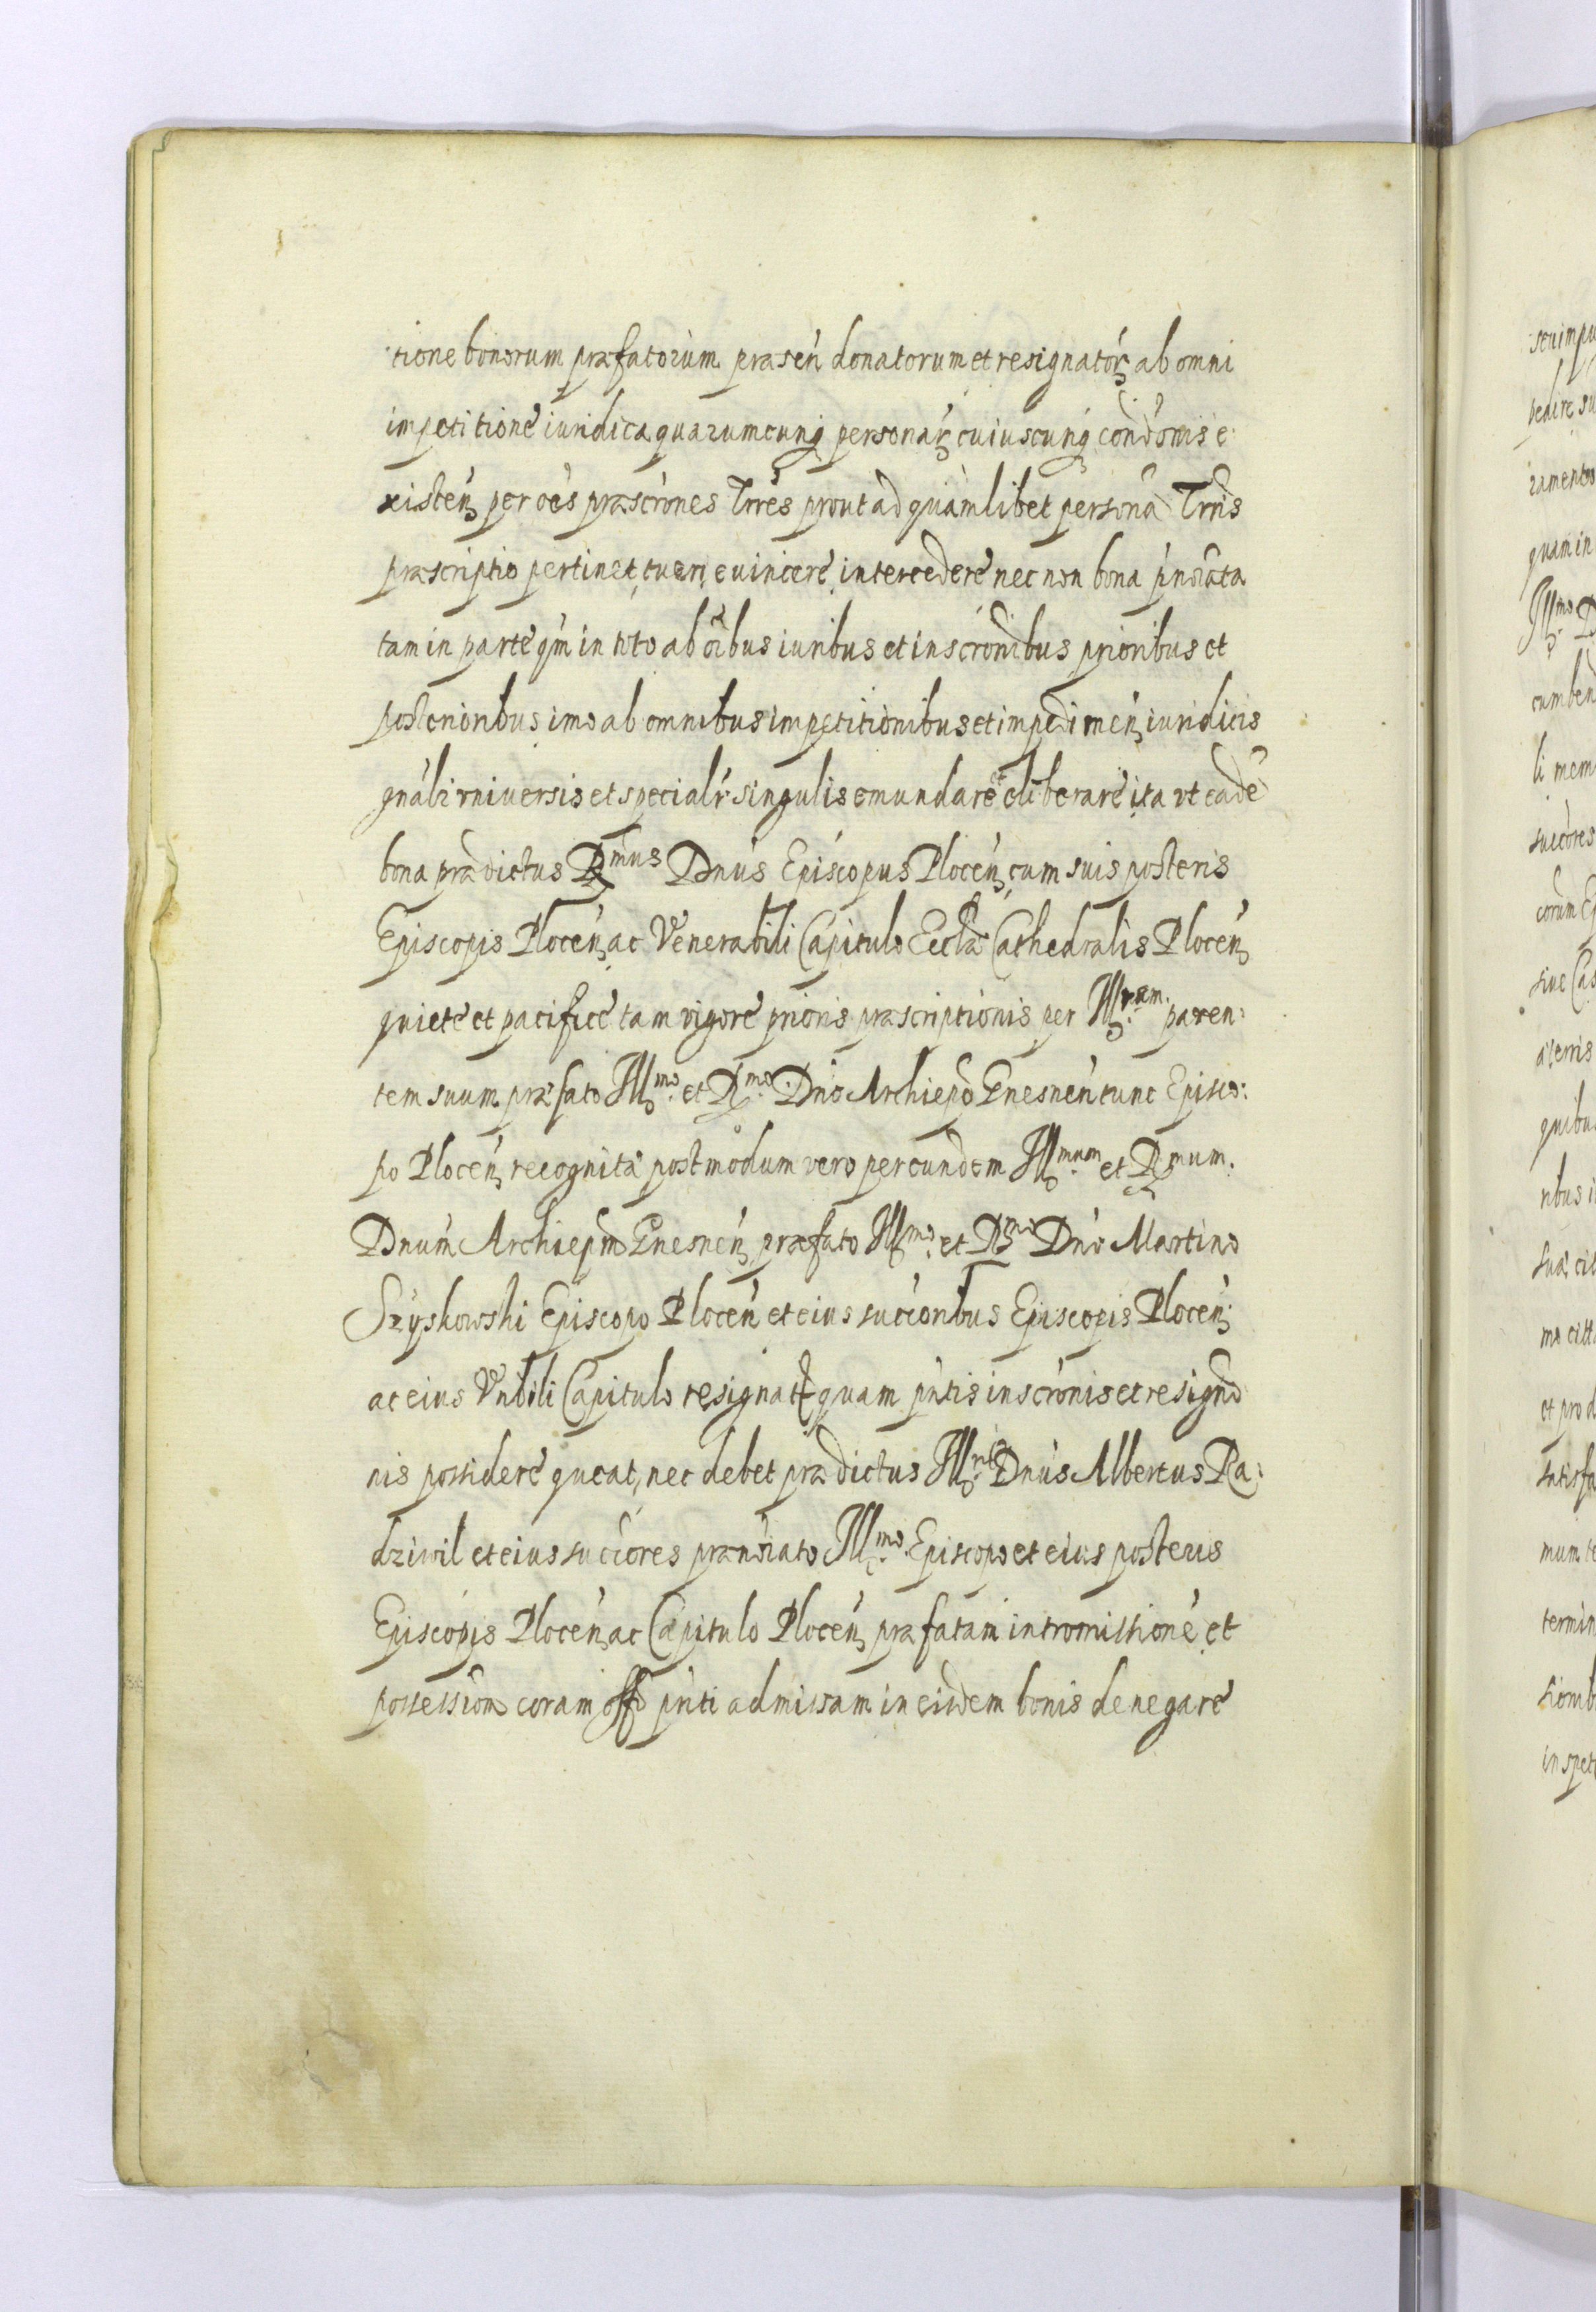 tione bonorum præfatorum præsen donatorum et resignator ab omni
impetitione iuridica quarumcunq personar cuiuscunq condonis e
xisten per oes præscrones Trres prout ad quamlibet persona Trris
præscriptio pertinet, tueri, evincere, intercedere nec non bona pnoiata
tam in parte qm in toto ab oibus iuribus et inscronibus prioribus et
posterioribus imo ab omnibus impetitionibus et impedimen iuridicis
gnalr vniversis et specialr singulis emundare et eliberare ita vt eade
bona prædictus Rmus Dnus Episcopus Plocen cum suis posteris
Episcopis Plocen ac Venerabili Capitulo Eccla Cathedralis Plocen
quiete et pacifice tam vigore prioris præscriptionis per Illrem. paren:
tem suum præfato Illmo. et Rmo. Dno Archiepo Gnesnen tunc Episco:
po Plocen recognita postmodum vero per eundem Illmum et Rmum.
Dnum Archiepm Gnesnen præfato Illmo. et Rmo Dno Martino
Szyskowski Episcopo Plocen et eius succoribus Episcopis Plocen
ac eius Vnbili Capitulo resignat quam pntis inscronis et resigno
nis possidere queat, nec debet prædictus Illris Dnus Albertus Ra:
dziwil et eius succores prænoiato Illmo. Episcopo et eius posteris
Episcopis Plocen ac Capitulo Plocen præfatam intromissione et
possessiom coram offo pnti admissam in eisdem bonis denegare